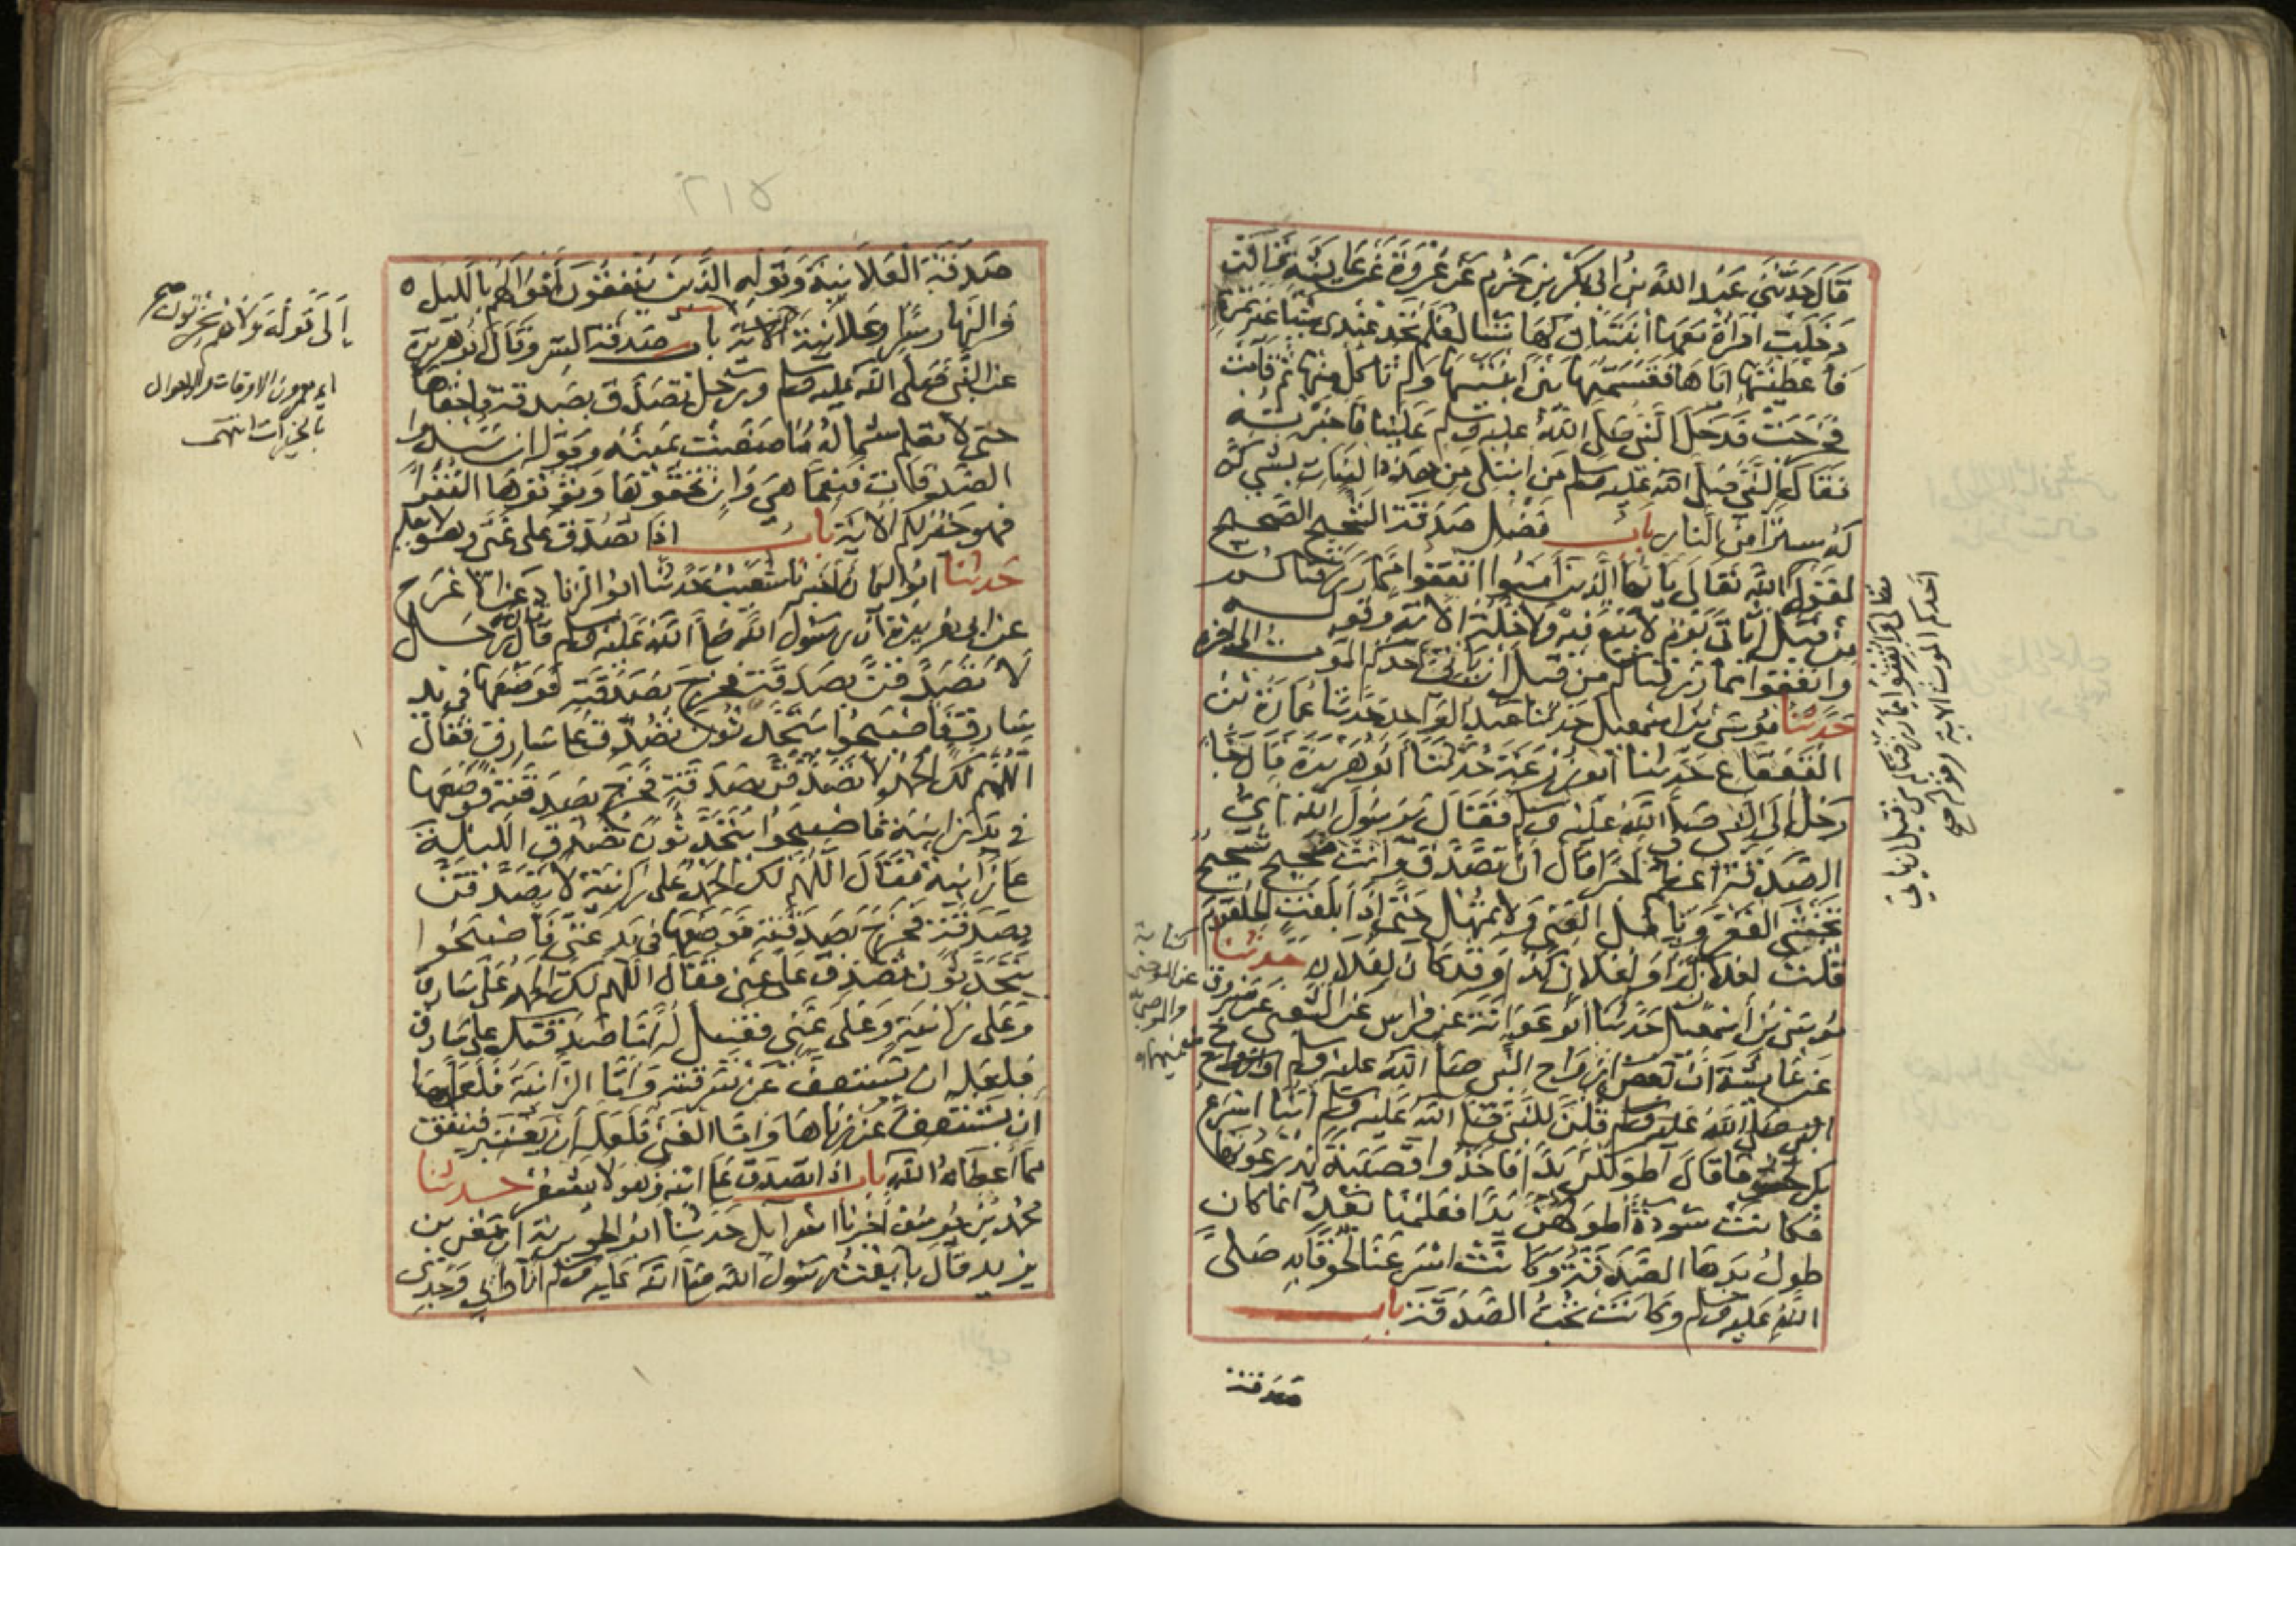 قَالَ حَدَّثَنِي عَبْدُ اللَّهِ بْنُ أَبِي بَكْرِ بْنِ حَزْمٍ عَنْ عُرْوَةَ عَنْ عَائِشَةَ قَالَتْ
دَخَلَتِ امْرَأَةٌ مَعَهَا ابْنَتَانِ لَهَا تَسْأَلُ فَلَمْ تَجِدْ عِنْدِي شَيْئًا غَيْرَ تَمْرَةٍ
فَأَعْطَيْتُهَا إِيَّاهَا فَقَسَمَتْهَا بَيْنَ ابْنَتَيْهَا وَلَمْ تَأْكُلْ مِنْهَا ثُمَّ قَامَتْ
فَخَرَجَتْ فَدَخَلَ النَّبِيُّ صَلَّى اللَّهُ عَلَيْهِ وَسَلَّمَ عَلَيْنَا فَأَخْبَرْتُهُ
فَقَالَ النَّبِيُّ صَلَّى اللَّهُ عَلَيْهِ وَسَلَّمَ مَنِ ابْتُلِيَ مِنْ هَذِهِ الْبَنَاتِ بِشَيْءٍ كُنَّ
لَهُ سِتْرًا مِنَ النَّارِ بَابُ فَضْلِ صَدَقَةِ الشَّحِيحِ الصَّحِيحِ
لِقَوْلِ اللَّهِ تَعَالَى يَا أَيُّهَا الَّذِينَ آمَنُوا أَنْفِقُوا مِمَّا رَزَقْنَاكُمْ
مِنْ قَبْلِ أَنْ يَأْتِيَ يَوْمٌ لَا بَيْعٌ فِيهِ وَلَا خُلَّةٌ الْآيَةَ وَقَوْلِهِ
وَأَنْفِقُوا مِمَّا رَزَقْنَاكُمْ مِنْ قَبْلِ أَنْ يَأْتِيَ أَحَدَكُمُ الْمَوْتُ إِلَى آخِرِهِ
حَدَّثَنَا مُوسَى بْنُ إِسْمَعِيلَ حَدَّثَنَا عَبْدُ الْوَاحِدِ حَدَّثَنَا عُمَارَةُ بْنُ
الْقَعْقَاعِ حَدَّثَنَا أَبُو زُرْعَةَ حَدَّثَنَا أَبُو هُرَيْرَةَ قَالَ جَاءَ
رَجُلٌ إِلَى النَّبِيِّ صَلَّى اللَّهُ عَلَيْهِ وَسَلَّمَ فَقَالَ يَا رَسُولَ اللَّهِ أَيُّ
الصَّدَقَةِ أَعْظَمُ أَجْرًا قَالَ أَنْ تَصَدَّقَ وَأَنْتَ صَحِيحٌ شَحِيحٌ
تَخْشَى الْفَقْرَ وَتَأْمُلُ الْغِنَى وَلَا تُمْهِلْ حَتَّى إِذَا بَلَغَتِ الْحُلْقُومَ
قُلْتَ لِفُلَانٍ كَذَا وَلِفُلَانٍ كَذَا وَقَدْ كَانَ لِفُلَانٍ حَدَّثَنَا
مُوسَى بْنُ إِسْمَعِيلَ حَدَّثَنَا أَبُو عَوَانَةَ عَنْ فِرَاسٍ عَنِ الشَّعْبِيِّ عَنْ مَسْرُوقٍ
عَنْ عَائِشَةَ أَنَّ بَعْضَ أَزْوَاجِ النَّبِيِّ صَلَّى اللَّهُ عَلَيْهِ وَسَلَّمَ
النَّبِيِّ صَلَّى اللَّهُ عَلَيْهِ وَسَلَّمَ قُلْنَ لِلنَّبِيِّ صَلَّى اللَّهُ عَلَيْهِ وَسَلَّمَ أَيُّنَا أَسْرَعُ
بِكَ لُحُوقًا قَالَ أَطْوَلُكُنَّ يَدًا فَأَخَذُوا قَصَبَةً يَذْرَعُونَهَا
فَكَانَتْ سَوْدَةُ أَطْوَلَهُنَّ يَدًا فَعَلِمْنَا بَعْدُ أَنَّمَا كَانَ
طُولُ يَدِهَا الصَّدَقَةَ وَكَانَتْ أَسْرَعَنَا لُحُوقًا بِهِ صَلَّى
اللَّهُ عَلَيْهِ وَسَلَّمَ وَكَانَتْ تُحِبُّ الصَّدَقَةَ بَابُ
صدقة
تعالى وانفقوا مما رزقناكم من قبل ان ياتي
احدكم الموت الاية
٢١٥
صَدَقَةِ الْعَلَانِيَةِ وَقَوْلِهِ الَّذِينَ يُنْفِقُونَ أَمْوَالَهُمْ بِاللَّيْلِ
وَالنَّهَارِ سِرًّا وَعَلَانِيَةً الْآيَةَ بَابُ صَدَقَةِ السِّرِّ وَقَالَ أَبُو هُرَيْرَةَ
عَنِ النَّبِيِّ صَلَّى اللَّهُ عَلَيْهِ وَسَلَّمَ وَرَجُلٌ تَصَدَّقَ بِصَدَقَةٍ فَأَخْفَاهَا
حَتَّى لَا تَعْلَمَ شِمَالُهُ مَا صَنَعَتْ يَمِينُهُ وَقَوْلِهِ إِنْ تُبْدُوا
الصَّدَقَاتِ فَنِعِمَّا هِيَ وَإِنْ تُخْفُوهَا وَتُؤْتُوهَا الْفُقَرَاءَ
فَهُوَ خَيْرٌ لَكُمْ الْآيَةَ بَابُ إِذَا تَصَدَّقَ عَلَى غَنِيٍّ وَهُوَ لَا يَعْلَمُ
حَدَّثَنَا أَبُو الْيَمَانِ أَخْبَرَنَا شُعَيْبٌ حَدَّثَنَا أَبُو الزِّنَادِ عَنِ الْأَعْرَجِ
عَنْ أَبِي هُرَيْرَةَ أَنَّ رَسُولَ اللَّهِ صَلَّى اللَّهُ عَلَيْهِ وَسَلَّمَ قَالَ قَالَ رَجُلٌ
لَأَتَصَدَّقَنَّ بِصَدَقَةٍ فَخَرَجَ بِصَدَقَتِهِ فَوَضَعَهَا فِي يَدِ
سَارِقٍ فَأَصْبَحُوا يَتَحَدَّثُونَ تُصُدِّقَ عَلَى سَارِقٍ فَقَالَ
اللَّهُمَّ لَكَ الْحَمْدُ لَأَتَصَدَّقَنَّ بِصَدَقَةٍ فَخَرَجَ بِصَدَقَتِهِ فَوَضَعَهَا
فِي يَدِ زَانِيَةٍ فَأَصْبَحُوا يَتَحَدَّثُونَ تُصُدِّقَ اللَّيْلَةَ
عَلَى زَانِيَةٍ فَقَالَ اللَّهُمَّ لَكَ الْحَمْدُ عَلَى زَانِيَةٍ لَأَتَصَدَّقَنَّ
بِصَدَقَةٍ فَخَرَجَ بِصَدَقَتِهِ فَوَضَعَهَا فِي يَدِ غَنِيٍّ فَأَصْبَحُوا
يَتَحَدَّثُونَ تُصُدِّقَ عَلَى غَنِيٍّ فَقَالَ اللَّهُمَّ لَكَ الْحَمْدُ عَلَى سَارِقٍ
وَعَلَى زَانِيَةٍ وَعَلَى غَنِيٍّ فَأُتِيَ فَقِيلَ لَهُ أَمَّا صَدَقَتُكَ عَلَى سَارِقٍ
فَلَعَلَّهُ أَنْ يَسْتَعِفَّ عَنْ سَرِقَتِهِ وَأَمَّا الزَّانِيَةُ فَلَعَلَّهَا
أَنْ تَسْتَعِفَّ عَنْ زِنَاهَا وَأَمَّا الْغَنِيُّ فَلَعَلَّهُ أَنْ يَعْتَبِرَ فَيُنْفِقَ
مِمَّا أَعْطَاهُ اللَّهُ بَابُ إِذَا تَصَدَّقَ عَلَى ابْنِهِ وَهُوَ لَا يَشْعُرُ حَدَّثَنَا
مُحَمَّدُ بْنُ يُوسُفَ أَخْبَرَنَا إِسْرَائِيلُ حَدَّثَنَا أَبُو الْجُوَيْرِيَةِ أَنَّ مَعْنَ بْنَ
يَزِيدَ قَالَ بَايَعْتُ رَسُولَ اللَّهِ صَلَّى اللَّهُ عَلَيْهِ وَسَلَّمَ أَنَا وَأَبِي وَجَدِّي
إِلَى قَوْلِهِ وَلَا هُمْ يَحْزَنُونَ صح
الاوقات والاحوال
بالخيرات انتهى